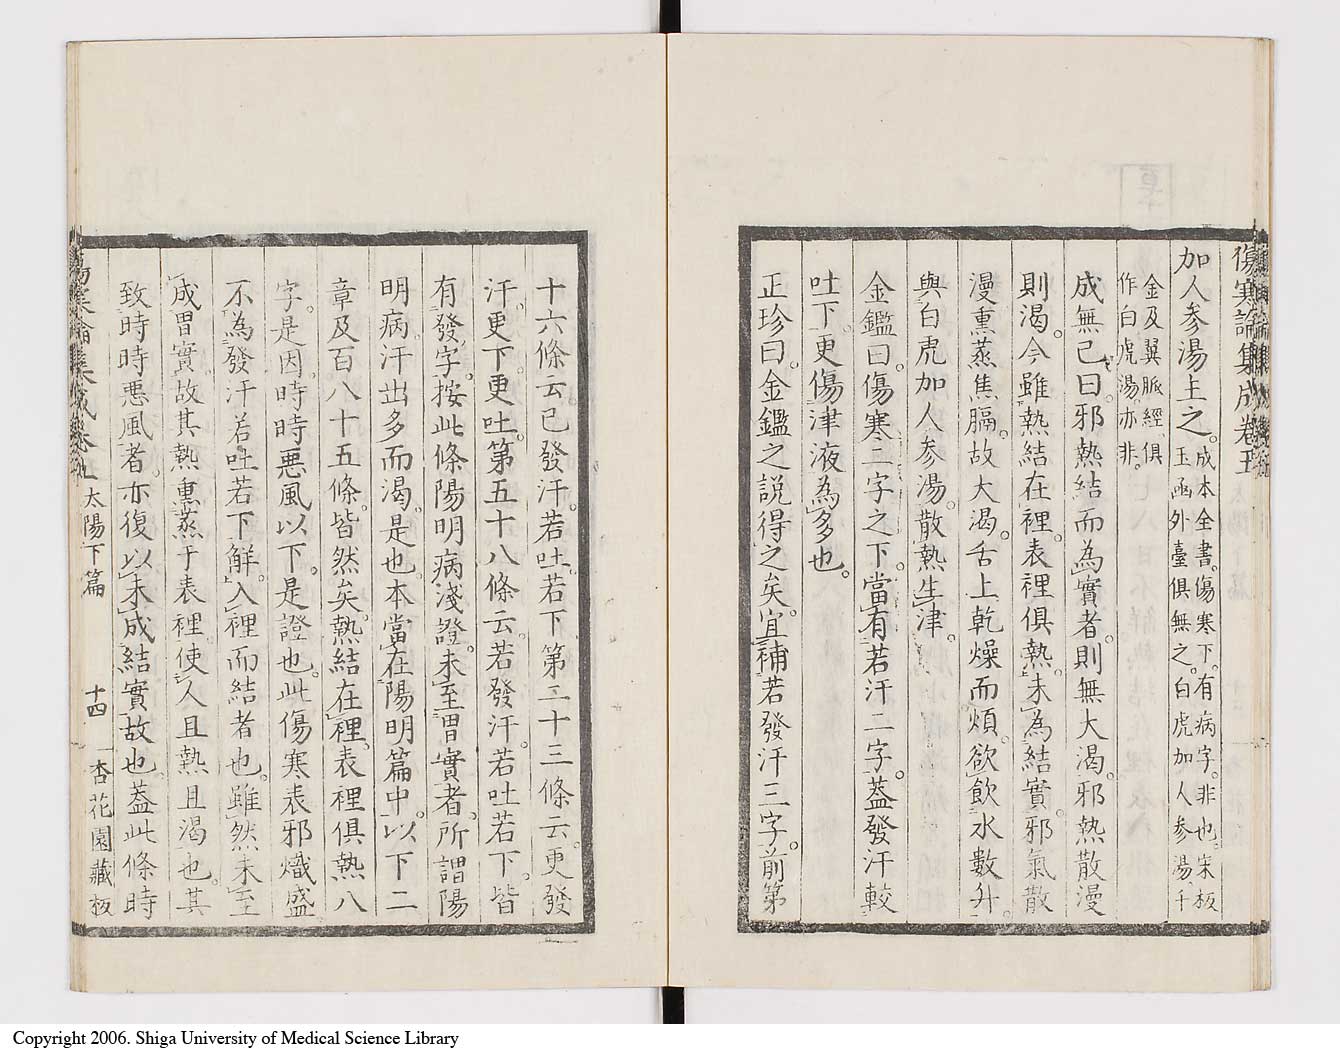 傷寒論集成卷五
加人參湯主之。成本全書。傷寒下。有病字。非也。宋板
玉函外臺俱無之。白虎加人參湯。千
金及翼脈經俱
作白虎湯。亦非。
成無己曰。邪熱結而為實者。則無大渴。邪熱散漫
則渴。今雖熱結在裡。表裡俱熱。未為結實。邪氣散
漫熏蒸焦膈。故大渴。舌上乾燥而煩。欲飲水數升。
與白虎加人參湯。散熱生津。
金鑑曰。傷寒二字之下。當有若汗二字。蓋發汗較
吐下。更傷津液為多也。
正珍曰。金鑑之說得之矣。宜補若發汗三字。前第
十六條云已發汗。若吐。若下第二十三條云。更發
汗。更下。更吐。第五十八條云。若發汗。若吐若下。皆
有發字。按此條陽明病淺證。未至胃實者。所謂陽
明病。汗出多而渴。是也。本當在陽明篇中。以下二
章及百八十五條。皆然矣。熱結在裡。表裡俱熱八
字。是因。時時惡風以下。是證也。此傷寒表邪熾盛
不為發汗若吐若下解。入裡而結者也。雖然未至
成胃實。故其熱熏蒸于表裡。使人且熱且渴也。其
致時時惡風者。亦復以未成結實故也。蓋此條時
太陽下篇 十四 杏花園藏板
Copyright 2006. Shiga University of Medical Science Library